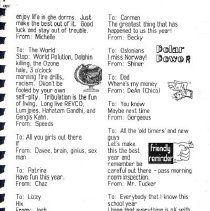 enjoy life in ghe dorms. Just
make the best out of it. Good
luck and stay out of trouble.
From: Michelle
To: The World
Stop: World Pollution, Dolphin
killing, the Ozone
hole, 3 o'clock
morning fire drills,
racism. Don't be
fooled by your own
self-pity. Tribulation is the fun
of living. Long live REVCO,
Lum jobs, Mahatam Gandhi, and
Gengis Kahn.
From: Speeds
To: All you girls out there
If
From: Dave, brain, simon, sex
To: Patrina
Have fun this year.
From: Chaz
To: Lizzy
Hi
From: Josh
To: Carmen
The greatest thing that has
happened to us this year!
From: Becky
To: Oslonians
I miss Norway!
From: Shinar
Polar
Power
To: Dad
Where's my money?
From: DeAn (Chico)
To: You know
Maybe next time
From: Gorgeous
To: All the 'old timers' and new
guys
Let's make
this the best
year and
remember be
careful out there - pass morning
room inspection.
From: Mr. Tucker
friendly
reminder
To: Everybody that I know this
school year
I hope that everybody is with